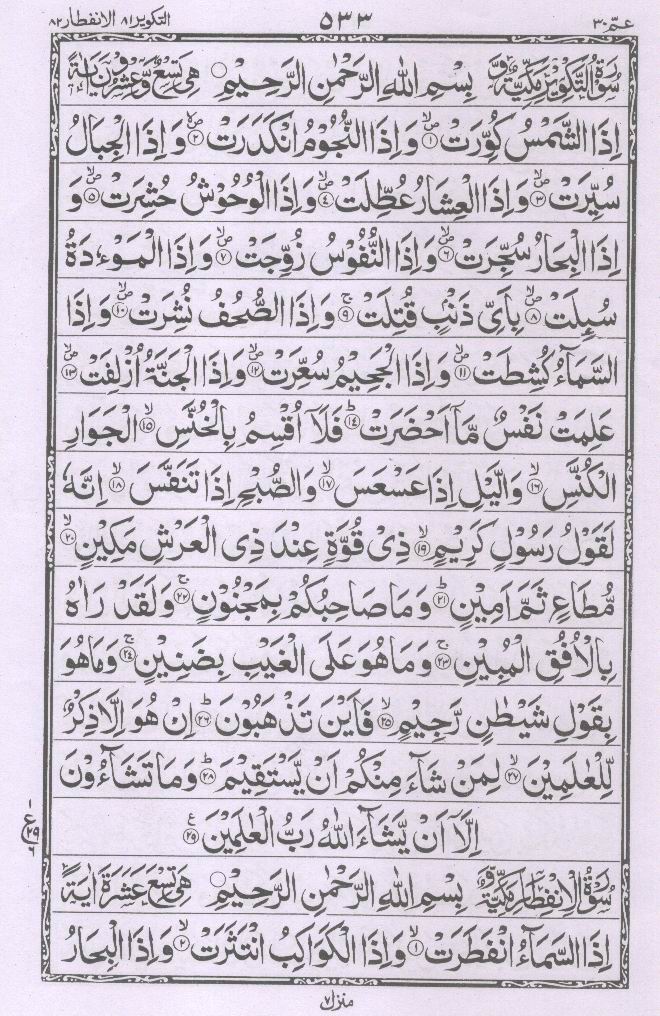 عـمّ ۳۰ ۵۳۳ التكوير ۸۱ الانفطار ۸۲
سُوْرَةُ التَّكْوِيْرِ مَكِّيَّةٌ وَّ بِسْمِ اللهِ الرَّحْمٰنِ الرَّحِيْمِ هِيَ تِسْعٌ وَّعِشْرُوْنَ اٰيَةً
اِذَا الشَّمْسُ كُوِّرَتْ ۙ﴿۱﴾ وَاِذَا النُّجُوْمُ انْكَدَرَتْ ۙ﴿۲﴾ وَاِذَا الْجِبَالُ
سُيِّرَتْ ۙ﴿۳﴾ وَاِذَا الْعِشَارُ عُطِّلَتْ ۙ﴿۴﴾ وَاِذَا الْوُحُوْشُ حُشِرَتْ ۙ﴿۵﴾ وَ
اِذَا الْبِحَارُ سُجِّرَتْ ۙ﴿۶﴾ وَاِذَا النُّفُوْسُ زُوِّجَتْ ۙ﴿۷﴾ وَاِذَا الْمَوْءٗدَةُ
سُىِٕلَتْ ۙ﴿۸﴾ بِاَىِّ ذَنْۢبٍ قُتِلَتْ ۚ﴿۹﴾ وَاِذَا الصُّحُفُ نُشِرَتْ ۙ﴿۱۰﴾ وَاِذَا
السَّمَآءُ كُشِطَتْ ۙ﴿۱۱﴾ وَاِذَا الْجَحِيْمُ سُعِّرَتْ ۙ﴿۱۲﴾ وَاِذَا الْجَنَّةُ اُزْلِفَتْ ۙ﴿۱۳﴾
عَلِمَتْ نَفْسٌ مَّاۤ اَحْضَرَتْ ؕ﴿۱۴﴾ فَلَاۤ اُقْسِمُ بِالْخُنَّسِ ۙ﴿۱۵﴾ الْجَوَارِ
الْكُنَّسِ ۙ﴿۱۶﴾ وَالَّيْلِ اِذَا عَسْعَسَ ۙ﴿۱۷﴾ وَالصُّبْحِ اِذَا تَنَفَّسَ ۙ﴿۱۸﴾ اِنَّهٗ
لَقَوْلُ رَسُوْلٍ كَرِيْمٍ ۙ﴿۱۹﴾ ذِيْ قُوَّةٍ عِنْدَ ذِي الْعَرْشِ مَكِيْنٍ ۙ﴿۲۰﴾
مُّطَاعٍ ثَمَّ اَمِيْنٍ ؕ﴿۲۱﴾ وَمَا صَاحِبُكُمْ بِمَجْنُوْنٍ ۚ﴿۲۲﴾ وَلَقَدْ رَاٰهُ
بِالْاُفُقِ الْمُبِيْنِ ۚ﴿۲۳﴾ وَمَا هُوَ عَلَى الْغَيْبِ بِضَنِيْنٍ ۚ﴿۲۴﴾ وَمَا هُوَ
بِقَوْلِ شَيْطٰنٍ رَّجِيْمٍ ۙ﴿۲۵﴾ فَاَيْنَ تَذْهَبُوْنَ ؕ﴿۲۶﴾ اِنْ هُوَ اِلَّا ذِكْرٌ
لِّلْعٰلَمِيْنَ ۙ﴿۲۷﴾ لِمَنْ شَآءَ مِنْكُمْ اَنْ يَّسْتَقِيْمَ ؕ﴿۲۸﴾ وَمَا تَشَآءُوْنَ
اِلَّاۤ اَنْ يَّشَآءَ اللهُ رَبُّ الْعٰلَمِيْنَ ﴿۲۹﴾ ع
۱ ع ۲۹ ۶
سُوْرَةُ الْاِنْفِطَارِ مَكِّيَّةٌ وَّ بِسْمِ اللهِ الرَّحْمٰنِ الرَّحِيْمِ هِيَ تِسْعَ عَشَرَةَ اٰيَةً
اِذَا السَّمَآءُ انْفَطَرَتْ ۙ﴿۱﴾ وَاِذَا الْكَوَاكِبُ انْتَثَرَتْ ۙ﴿۲﴾ وَاِذَا الْبِحَارُ
منزل ۷